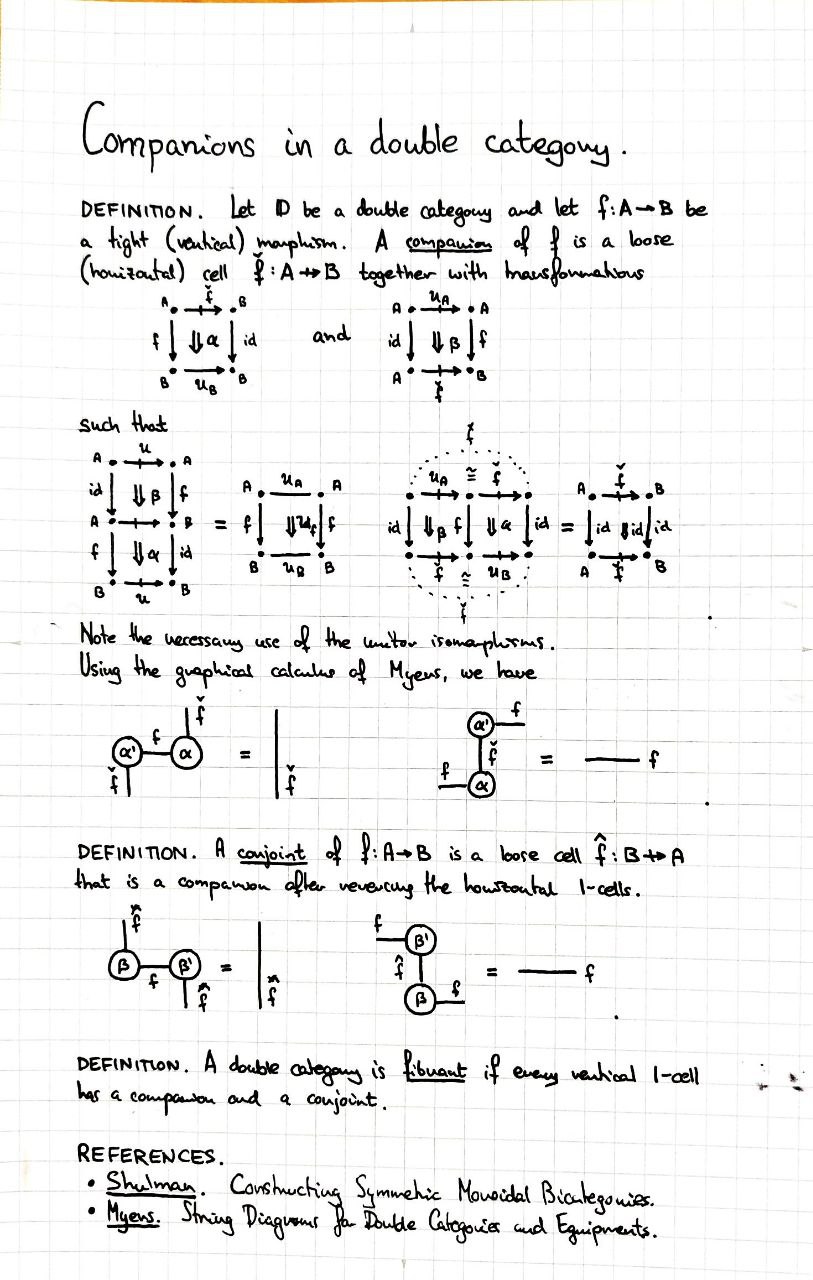 Companions in a double category.
DEFINITION. Let 𝔻 be a double category and let f: A → B be
a tight (vertical) morphism. A companion of f is a loose
(horizontal) cell f̌ : A ⇸ B together with transformations
A f̌ B
f ⇓α id
B u_B B
and
A u_A A
id ⇓β f
A f̌ B
such that
A u A
id ⇓β f
A B
f ⇓α id
B u B
=
A u_A A
f ⇓u_f f
B u_B B
f̌
u_A ≅ f̌
id ⇓β f ⇓α id
f̌ ≅ u_B
f̌
=
A f̌ B
id ⇓id id
A f̌ B
Note the necessary use of the unitor isomorphisms.
Using the graphical calculus of Myers, we have
f̌
α' f α = f̌
f̌
α' f
f̌ = f
f α
DEFINITION. A conjoint of f: A → B is a loose cell f̂ : B ⇸ A
that is a companion after reversing the horizontal 1-cells.
f̂
β f β' = f̂
f̂
f β'
f̂ = f
β f
DEFINITION. A double category is fibrant if every vertical 1-cell
has a companion and a conjoint.
REFERENCES.
• Shulman. Constructing Symmetric Monoidal Bicategories.
• Myers. String Diagrams for Double Categories and Equipments.